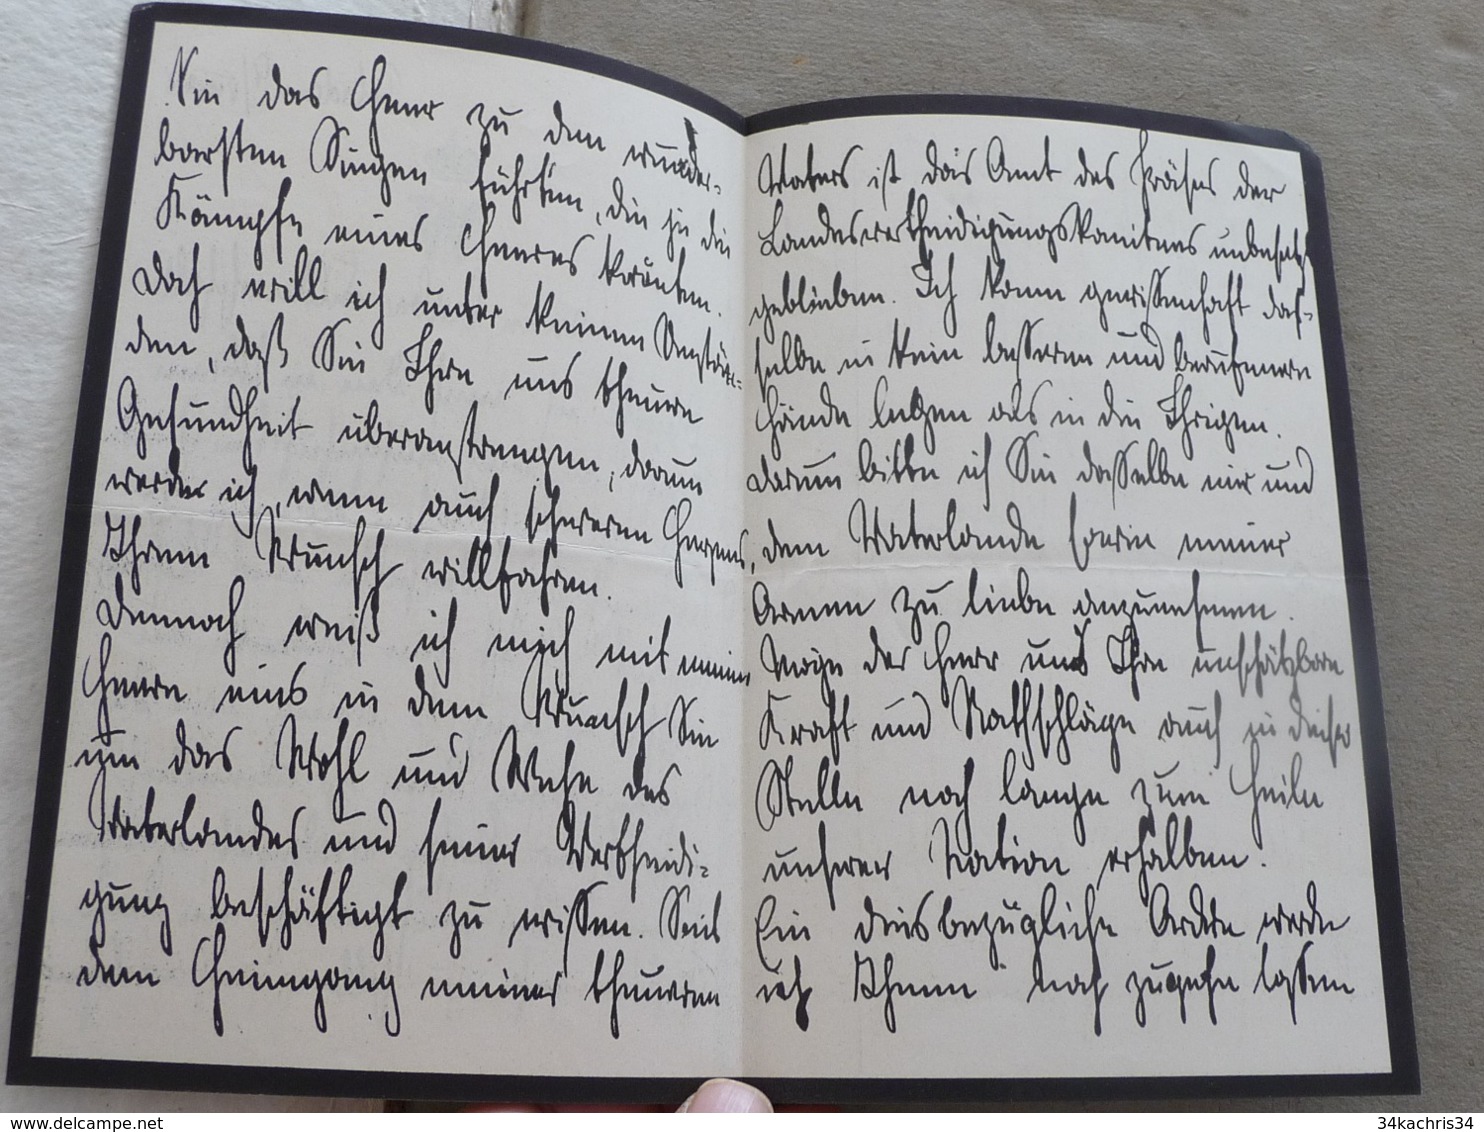 Sie das Heer zu den wunder-
barsten Siegen führten, die je die
Kämpfe eines Heeres krönten.
Doch will ich unter keinen Umstän-
den, daß Sie Ihre uns theuere
Gesundheit überanstrengen, darum
werde ich, wenn auch schweren Herzens,
Ihrem Wunsch willfahren.
Dennoch weiß ich mich mit meinem
Heere eins in dem Wunsch Sie
um das Wohl und Wehe des
Vaterlandes und seiner Vertheidi-
gung beschäftigt zu wissen. Seit
dem Heimgang meines theueren
Vaters ist das Amt des Präses der
Landesvertheidigungskomitees unbesetzt
geblieben. Ich kann gewissenhaft das-
selbe in kein besseren und berufenere
Hände legen als in die Ihrigen.
Darum bitte ich Sie dasselbe mir und
dem Vaterlande sowie meiner
Armee zu liebe anzunehmen.
Möge der Herr uns Ihre unschätzbare
Kraft und Rathschläge auch in dieser
Stelle noch lange zum Heile
unserer Nation erhalten.
Ein diesbezügliche Ordre werde
ich Ihnen noch zugehn lassen
delcampe.net
34kachris34